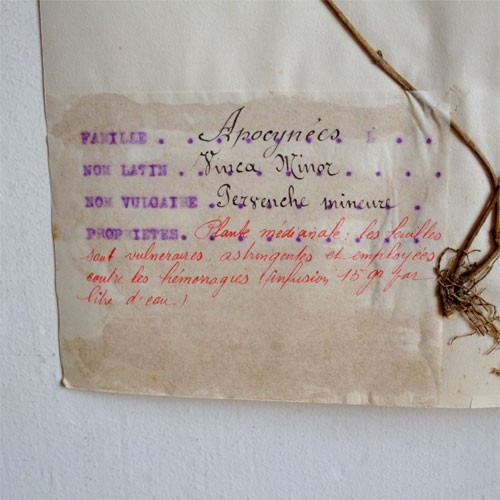 FAMILLE . Apocynées
NOM LATIN . Vinca Minor
NOM VULGAIRE Pervenche mineure
PROPRIETES. Plante médicinale : les feuilles
sont vulneraires, astringentes et employées
contre les hémorragies (infusion 15 gr par
litre d'eau.)